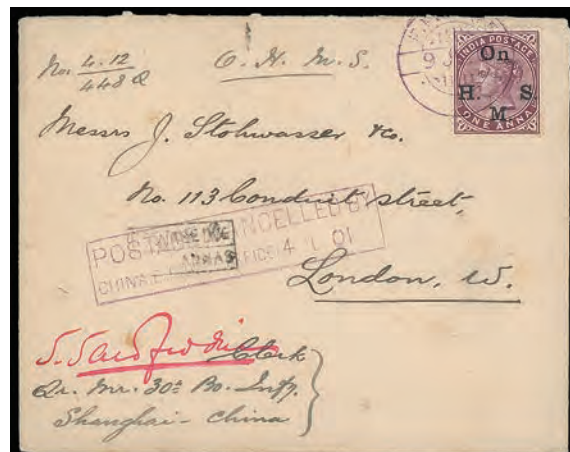 No. 4-12 / 448 Q
O. H. M. S.
INDIA POSTAGE
On
H. S.
M
ONE ANNA
Messrs J. Stohwasser & Co.
No. 113 Conduit street,
POSTAGE CANCELLED BY
DUE
ANNAS
4 01
London. W.
Clerk
Qr. Mr. 30th Bo. Infy.
Shanghai - China